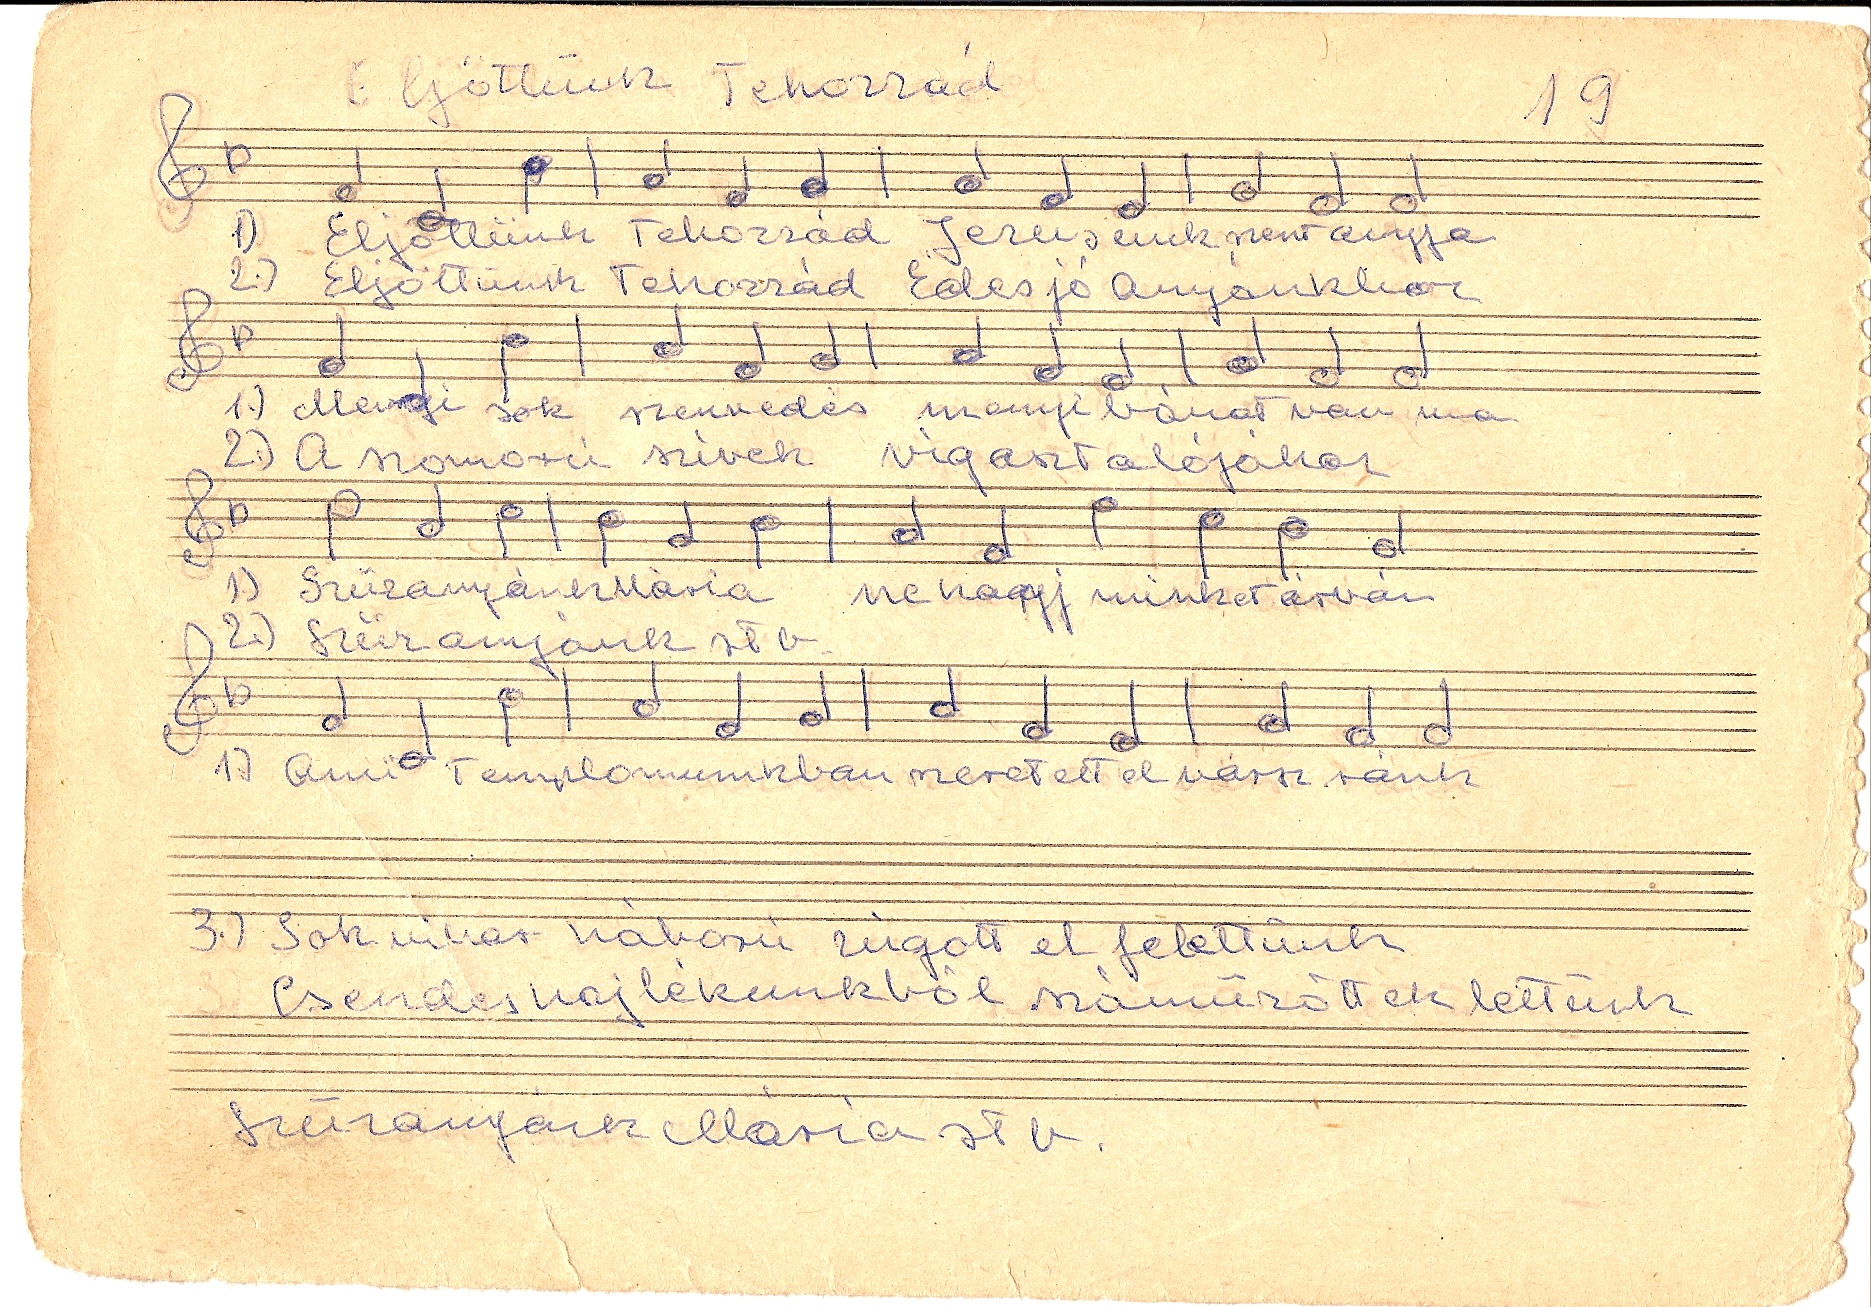 Eljöttünk Tehozzád
19
1) Eljöttünk Tehozzád Jézusunk szent anyja
2.) Eljöttünk Tehozzád Édes jó Anyánkhoz
1.) Mennyi sok szenvedés menyi bánat van ma
2.) A szomorú szivek vigasztalójához
1) Szűzanyánk Mária ne hagyj minket árván
2.) Szűzanyánk stb.
1) Ami Templomunkban szeretettel vársz ránk
3.) Sok vihar háború zúgott el felettünk
Csendes hajlékunkból száműzöttek lettünk
Szűzanyánk Mária stb.